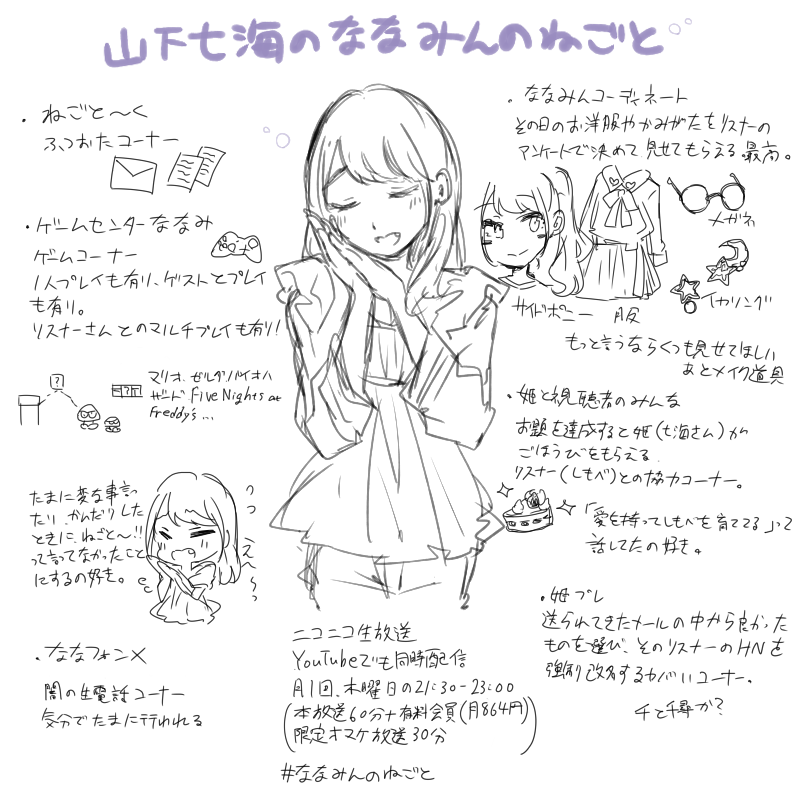 山下七海のななみんのねごと
・ねごと〜く
ふつおたコーナー
・ゲームセンターななみ
ゲームコーナー
1人プレイも有り、ゲストとプレイ
も有り。
リスナーさんとのマルチプレイも有り!
?
マリオ、ゼルダ、バイオハ
ザード Five Nights at
Freddy's...
たまに変な事言っ
たり、かんだりした
ときに、ねごと〜!!
って言ってなかったこと
にするの好き。
うっ
え〜っ
・ななフォン×
闇の生電話コーナー
気分でたまに行われる
・ななみんコーディネート
その日のお洋服やかみがたをリスナーの
アンケートで決めて見せてもらえる。最高。
メガネ
サイドポニー
服
イヤリング
もっと言うならくつも見せてほしい
あとメイク道具
・姫と視聴者のみんな
お題を達成すると姫(七海さん)が
ごほうびをもらえる
リスナー(しもべ)との協力コーナー。
「愛を持ってしもべを育ててる」って
話してたの好き。
・姫ブレ
送られてきたメールの中から良かった
ものを選び、そのリスナーのHNを
強制改名するカバいコーナー。
千と千尋か?
ニコニコ生放送
YouTubeでも同時配信
月1回、木曜日の21:30-23:00
(本放送60分+有料会員(月864円)
限定オマケ放送30分)
#ななみんのねごと